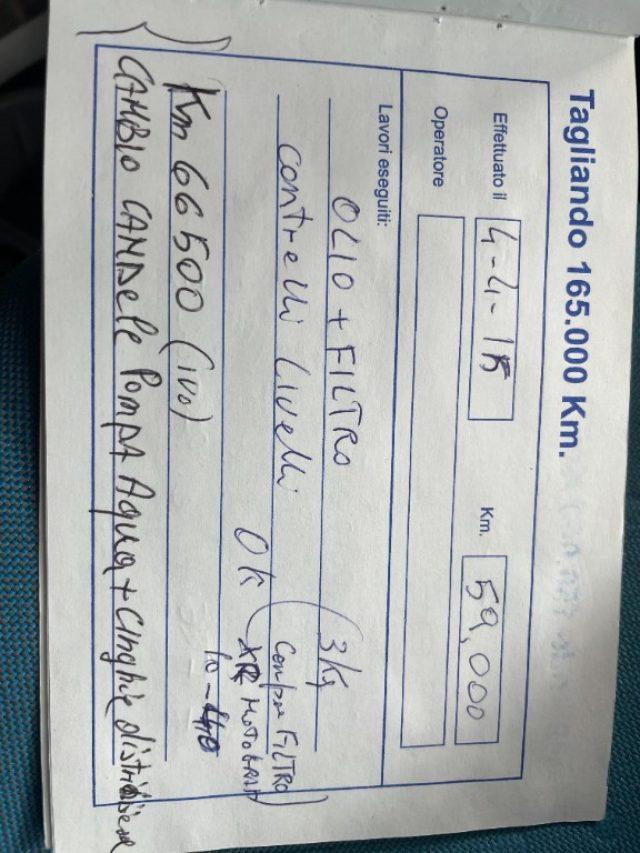 Tagliando 165.000 Km.
Effettuato il 4-4-15 Km. 59,000
Operatore
Lavori eseguiti:
OLIO + FILTRO (3 Kg
contrelli livelli OK (Compra FILTRO
Km 66500 (ivo)
CAMBIO CANDELE POMPA AQUA + CINGHIE distribuzione